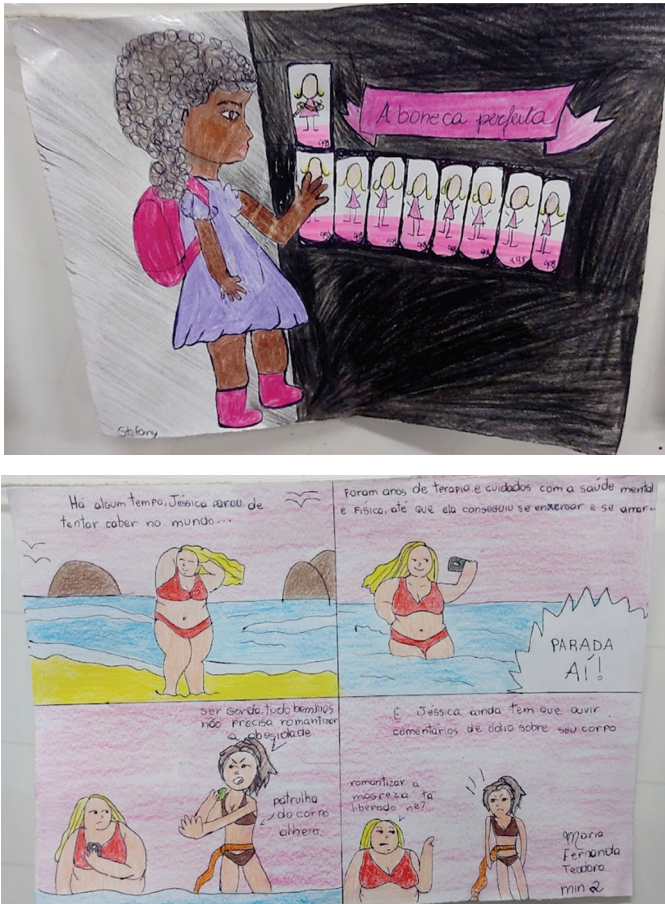 A boneca perfeita
Stefany
Há algum tempo, Jéssica parou de
tentar caber no mundo...
Foram anos de terapia e cuidados com a saúde mental
e Física, até que ela conseguiu se enxergar e se amar
PARADA
AÍ!
ser Gorda, tudo bem, mas
não precisa romantizar
a obesidade
patrulha
do corpo
alheio
E Jéssica ainda tem que ouvir
comentarios de ódio sobre seu corpo
romantizar a
magreza ta
liberado né?
Maria
Fernanda
Teodoro
min 2